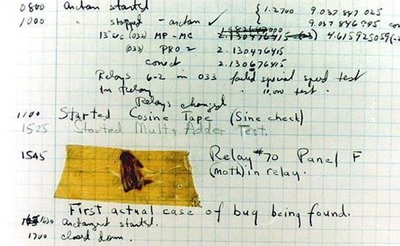 0800 Antan started
1000 " stopped - antan ✓ { 1.2700 9.037 847 025
9.037 846 995 correct
13" uc (032) MP - MC 2.130476415 (-3) 4.615925059(-2)
(033) PRO 2 2.130476415
correct 2.130676415
Relays 6-2 in 033 failed special speed test
in Relay " 10.000 test.
Relays changed
1100 Started Cosine Tape (Sine check)
1525 Started Mult + Adder Test.
1545 Relay #70 Panel F
(moth) in relay.
First actual case of bug being found.
1630 antangent started.
1700 closed down.